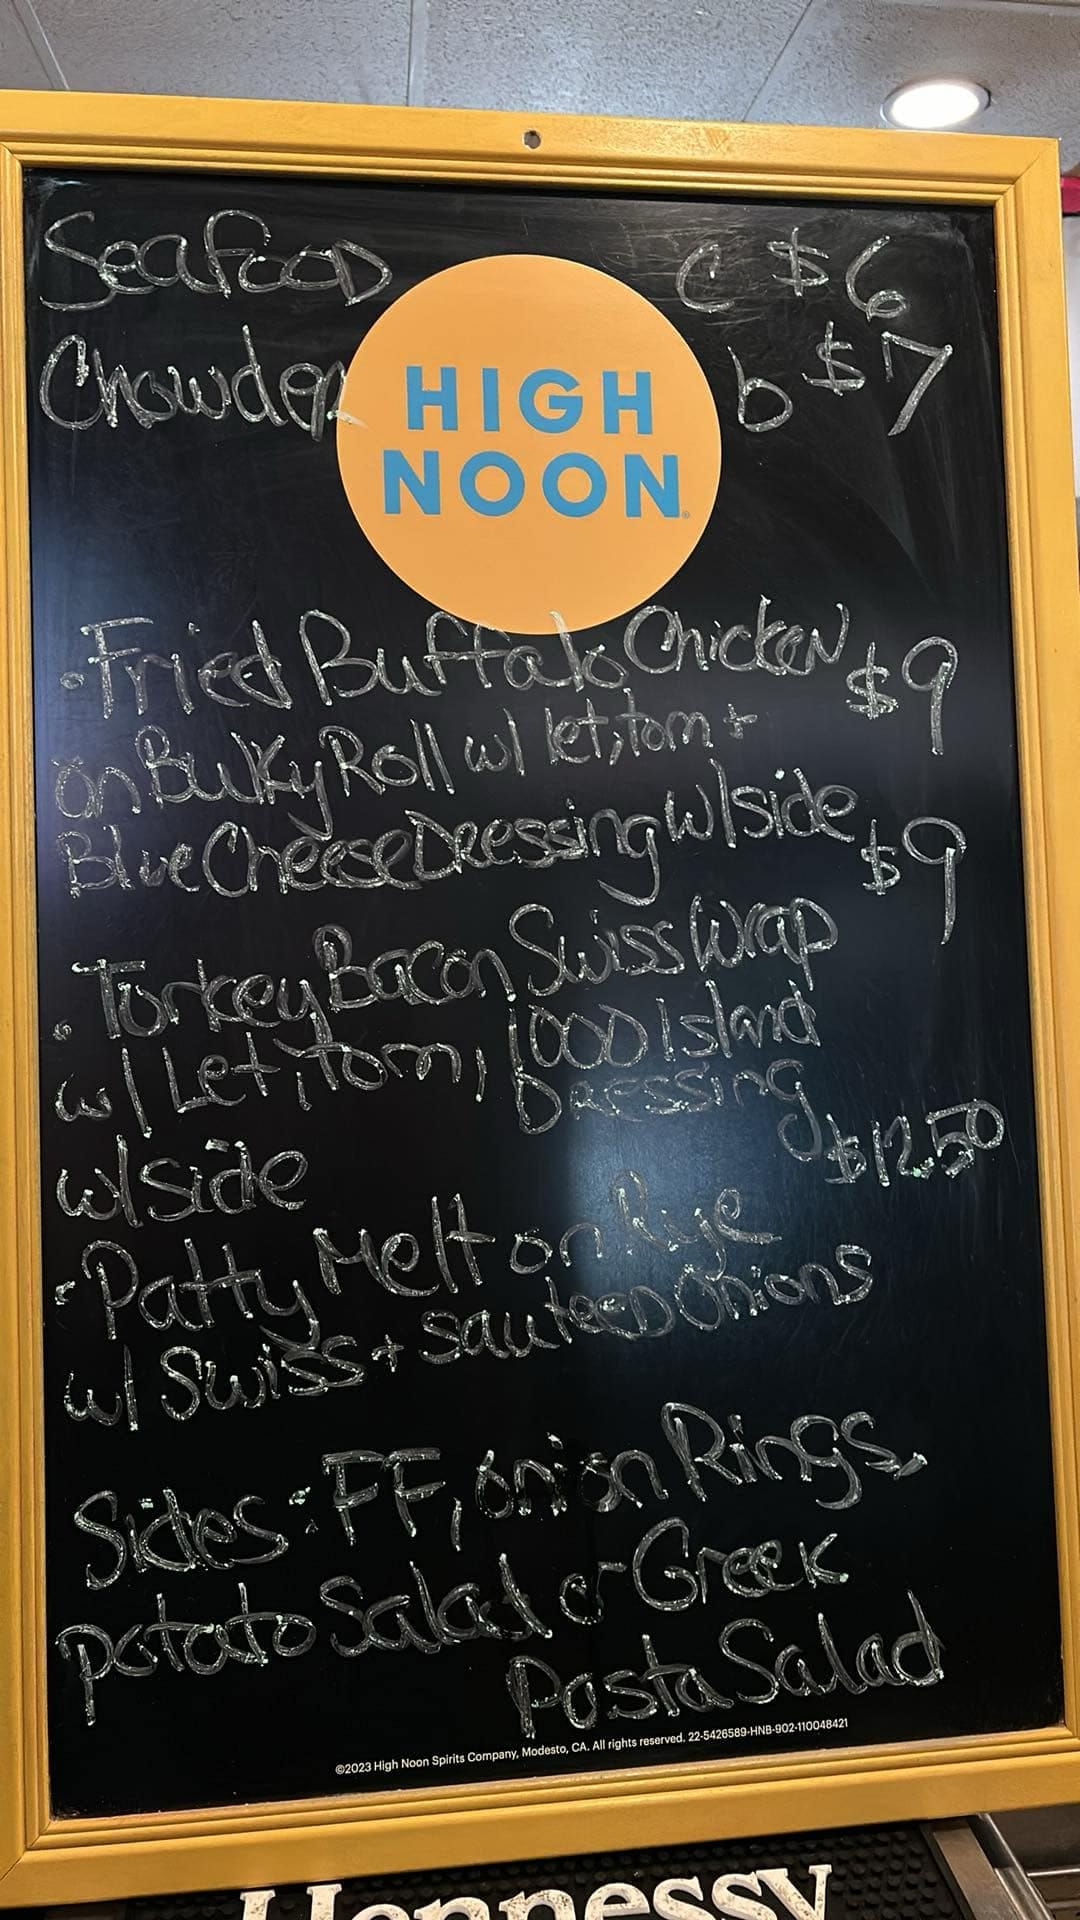 Seafood C $6
Chowder b $7
HIGH
NOON
· Fried Buffalo Chicken $9
on Bulky Roll w/ let, tom +
Blue Cheese Dressing w/side $9
· Turkey Bacon Swiss Wrap
w/ Let, tom, 1000 Island
Dressing
w/side $12.50
· Patty Melt on Rye
w/ Swiss + sauteed onions
Sides: FF, onion Rings,
potato Salad or Greek
Pasta Salad
©2023 High Noon Spirits Company, Modesto, CA. All rights reserved. 22-5426589-HNB-902-110048421
Hennessy